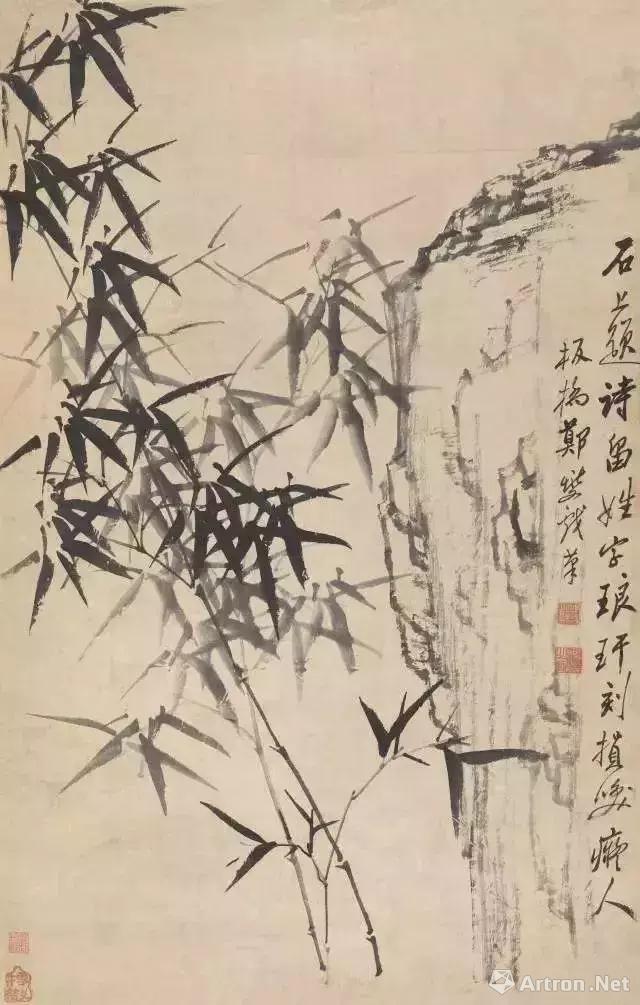 石上题诗留姓字琅玕刻损笑癡人
板桥鄭燮戲筆
Artron.Net